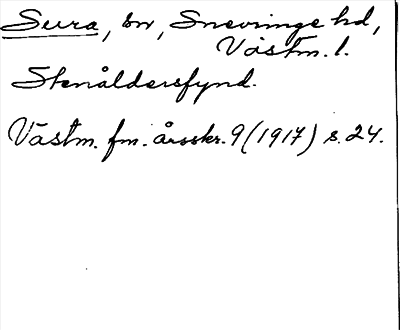 Sura, sn, Snevringe hd,
Västm. l.
Stenåldersfynd.
Västm. fm. årsskr. 9 (1917) s. 24.